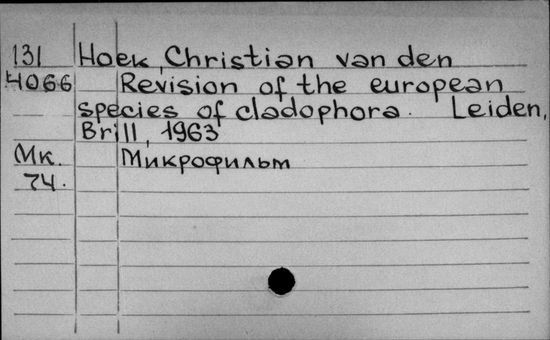 131 Hoek, Christian van den
4066 Revision of the european
species of cladophora. Leiden,
Brill, 1963
Мк. Микрофильм
74.